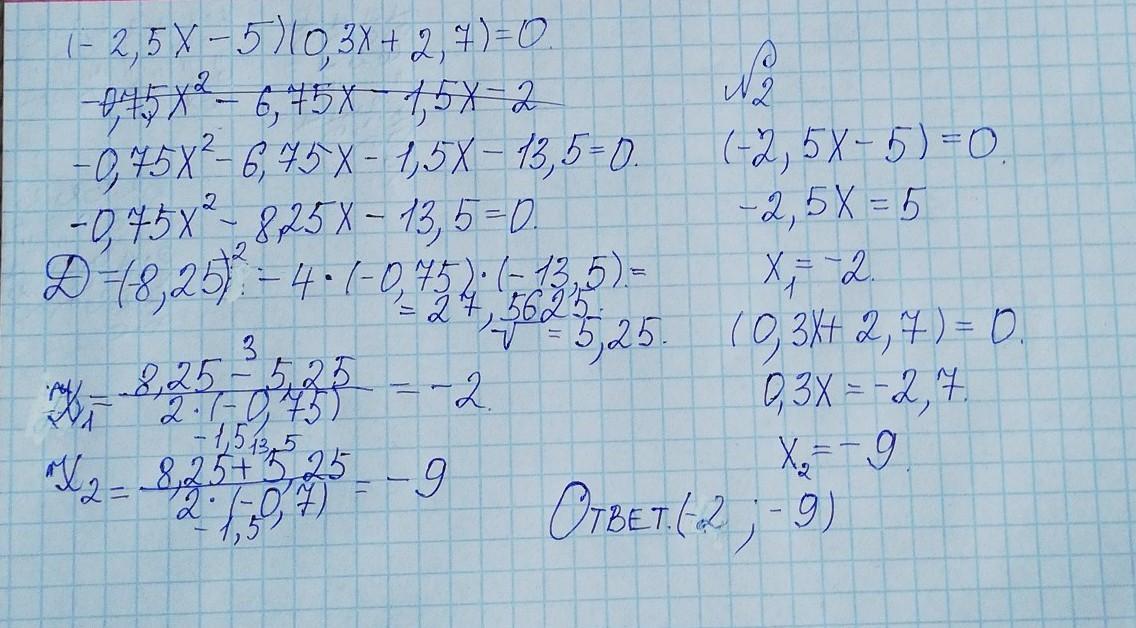 (-2,5x-5)(0,3x+2,7)=0.
-0,75x²-6,75x-1,5x=2
-0,75x²-6,75x-1,5x-13,5=0.
-0,75x²-8,25x-13,5=0.
Д=(-8,25)²-4·(-0,75)·(-13,5)=
=27,5625.
√ =5,25.
3
x₁= 8,25-5,25 / 2·(-0,75) = -2.
-1,5
13,5
x₂= 8,25+5,25 / 2·(-0,7) = -9
-1,5
№2
(-2,5x-5)=0.
-2,5x=5
x₁=-2.
(0,3x+2,7)=0.
0,3x=-2,7.
x₂=-9.
Ответ.(-2;-9)